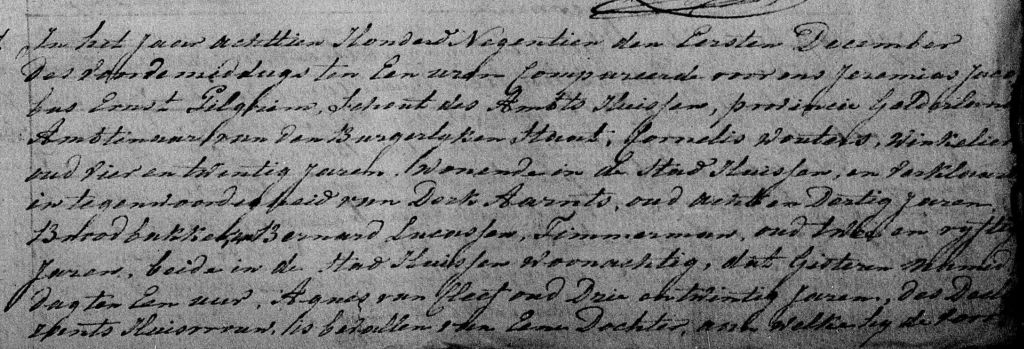 In het Jaar achttien Honderd Negentien den Eersten December
des voordemiddags ten Een uren Compareerde voor ons Jeremias Jaco
bus Ernst Pilgrim, Schout des Ambts Huissen, provincie Gelderland
Ambtenaar van den Burgerlyken Staat, Cornelis Wouters, Winkelier
oud vier en twentig Jaren, Wonende in de Stad Huissen, en verklaard
in tegenwoordigheid van Derk Aarnts, oud acht en Dertig Jaren
Broodbakker en Bernard Lucassen, Timmerman, oud twee en vyftig
Jaren, beide in de Stad Huissen woonachtig, dat Gisteren namid
dag ten Een uur, Agnes van Cleef oud Drie en twintig Jaren, des Decla
rants Huisvrouw, is bevallen van Eene Dochter, aan welke hy de voor